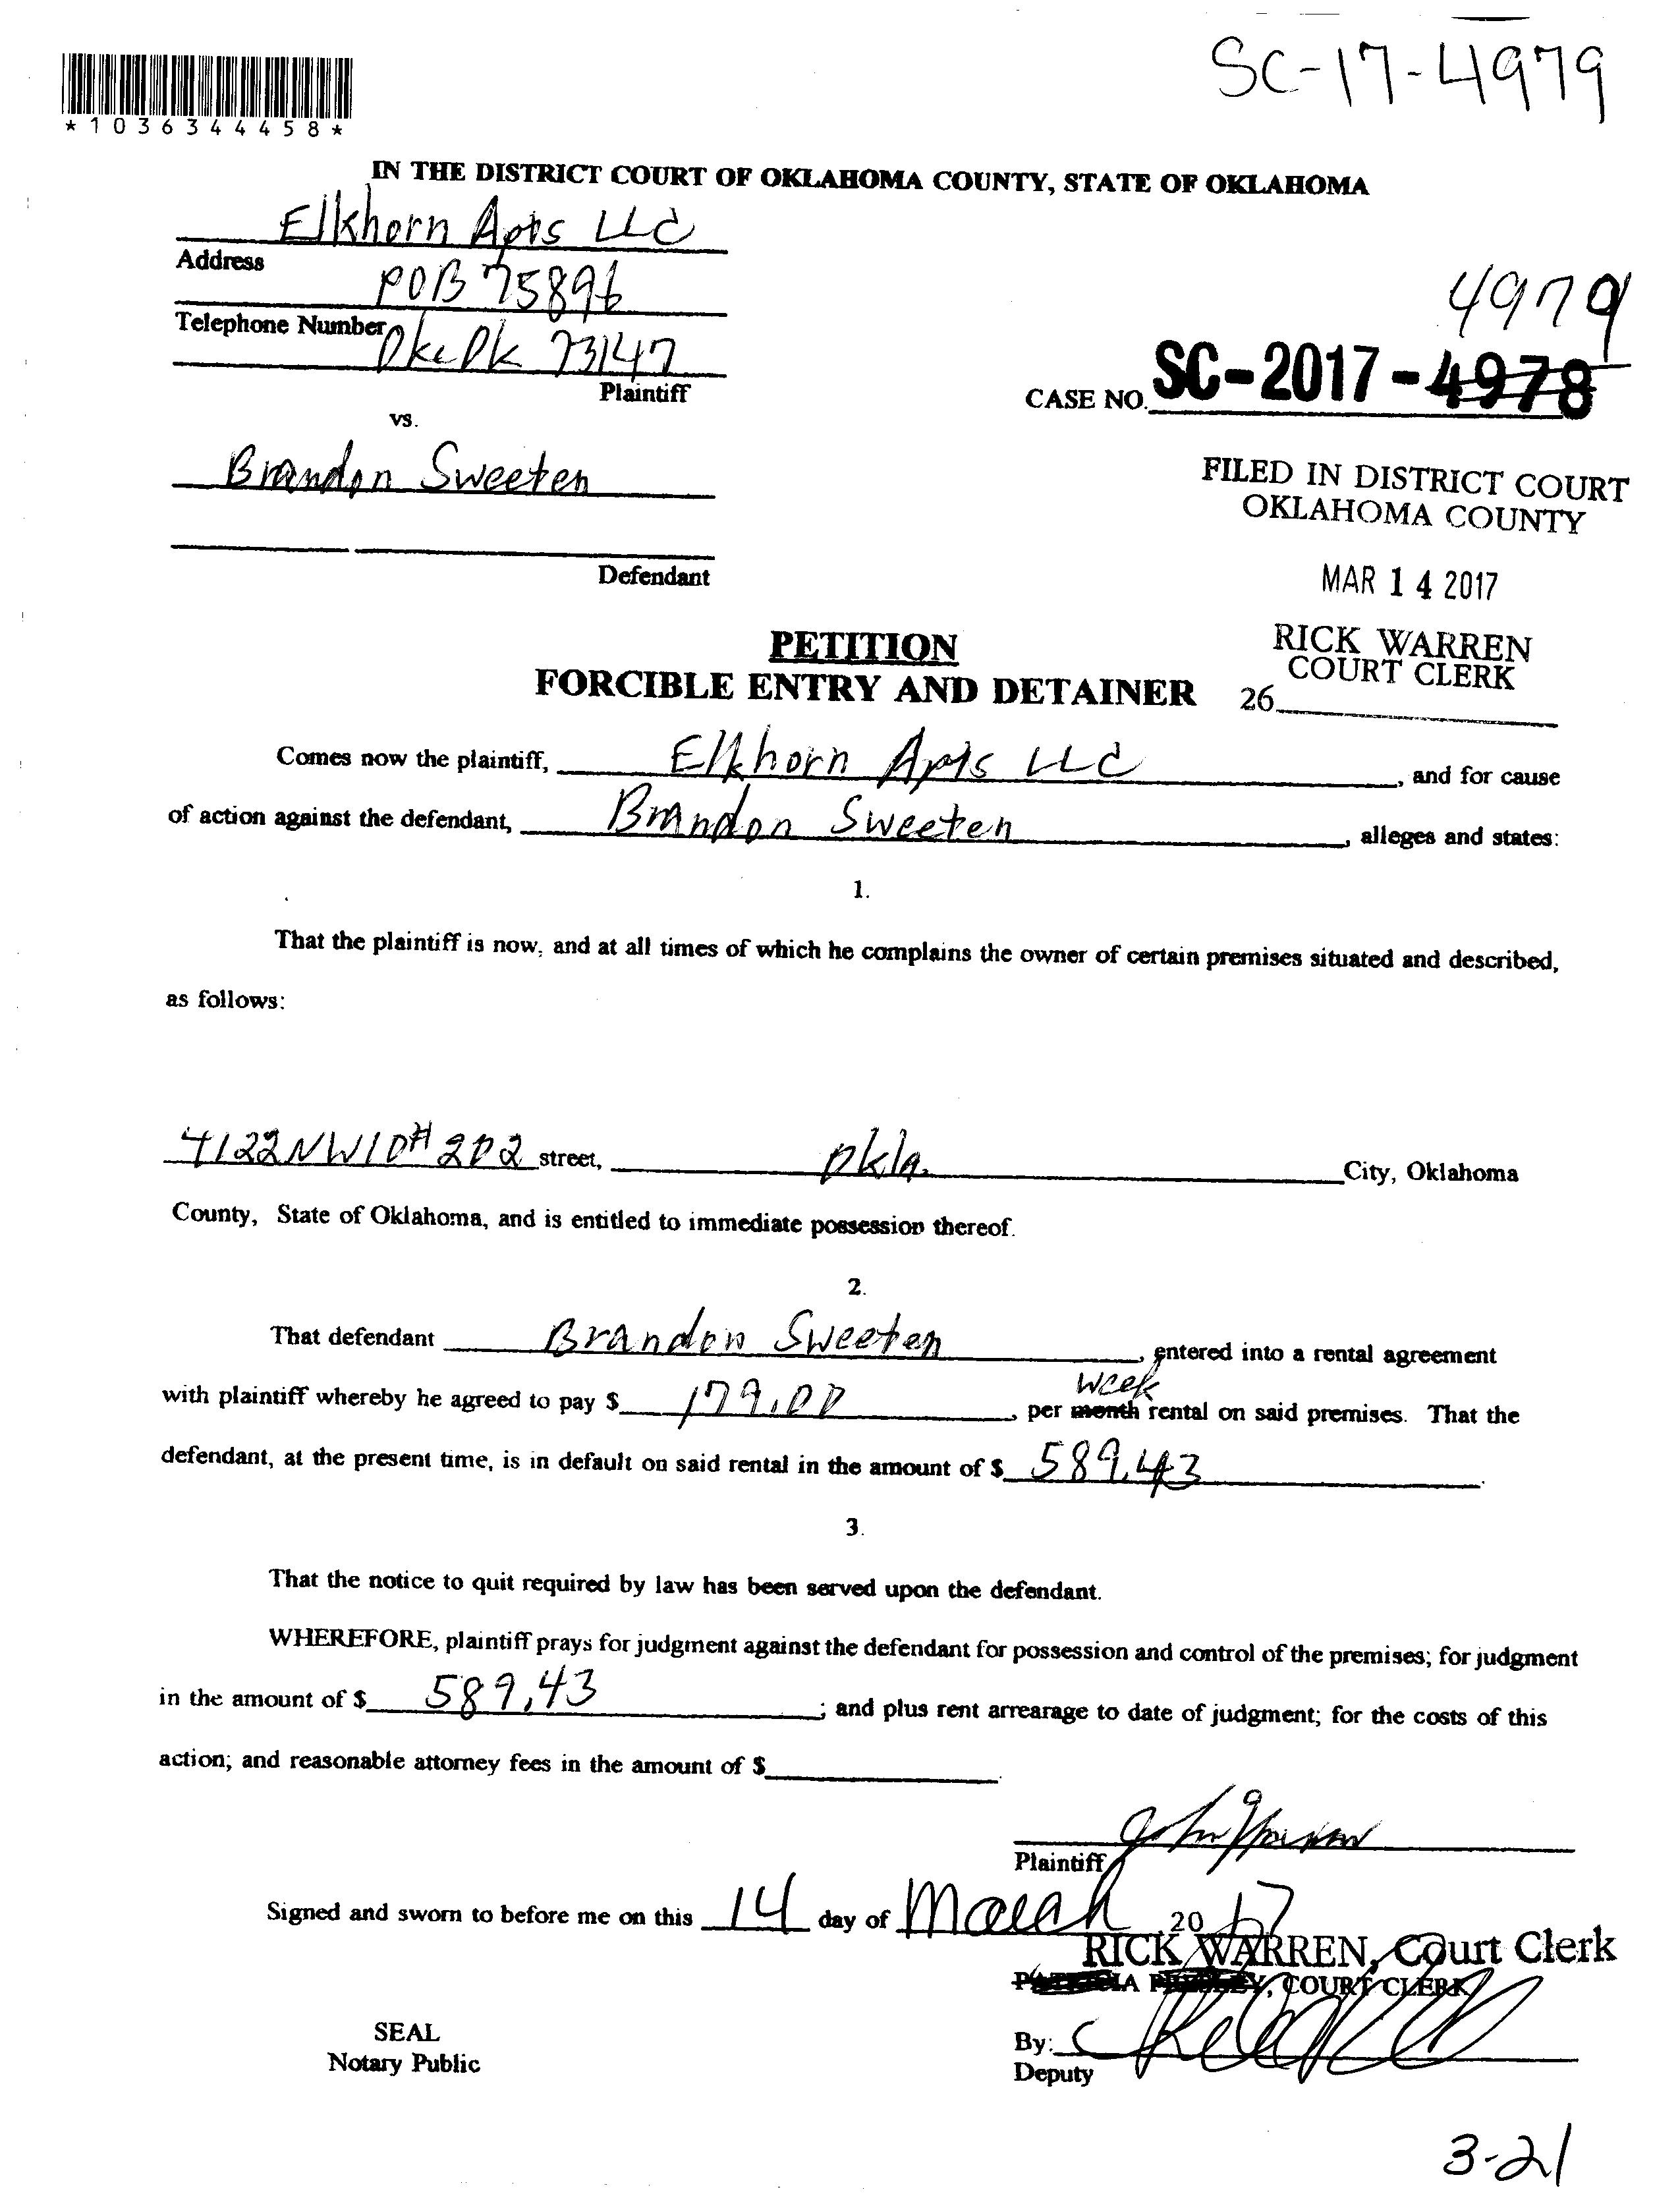 SC-17-4979
*1036344458*
IN THE DISTRICT COURT OF OKLAHOMA COUNTY, STATE OF OKLAHOMA
Elkhorn Apts LLC
Address
POB 75896
Telephone Number
Okc Ok 73147
Plaintiff
vs.
4979
CASE NO. SC-2017-4978
Brandon Sweeten
FILED IN DISTRICT COURT
OKLAHOMA COUNTY
Defendant
MAR 14 2017
PETITION
FORCIBLE ENTRY AND DETAINER
RICK WARREN
COURT CLERK
26
Comes now the plaintiff, Elkhorn Apts LLC, and for cause
of action against the defendant, Brandon Sweeten, alleges and states:
1.
That the plaintiff is now, and at all times of which he complains the owner of certain premises situated and described,
as follows:
4122 NW 10 # 202 street, Okla. City, Oklahoma
County, State of Oklahoma, and is entitled to immediate possession thereof.
2.
That defendant Brandon Sweeten, entered into a rental agreement
week
with plaintiff whereby he agreed to pay $ 179.00, per month rental on said premises. That the
defendant, at the present time, is in default on said rental in the amount of $ 589.43.
3.
That the notice to quit required by law has been served upon the defendant.
WHEREFORE, plaintiff prays for judgment against the defendant for possession and control of the premises; for judgment
in the amount of $ 589.43; and plus rent arrearage to date of judgment; for the costs of this
action; and reasonable attorney fees in the amount of $.
Plaintiff
Signed and sworn to before me on this 14 day of March, 2017
RICK WARREN, Court Clerk
COURT CLERK
SEAL
Notary Public
By:
Deputy
3-21